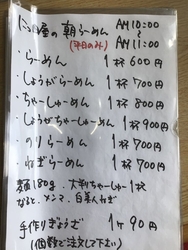 屋の 朝らーめん AM10:00
(平日のみ) 〜
AM11:00
・らーめん 1杯600円
・しょうがらーめん 1杯700円
・ちゃーしゅーめん 1杯800円
・しょうがちゃーしゅーめん 1杯900円
・のりらーめん 1杯700円
・ねぎらーめん 1杯700円
麺180g、大判ちゃーしゅー1枚
なると、メンマ、白美人ねぎ
手作りぎょうざ 1ヶ90円
(個数で注文して下さい)